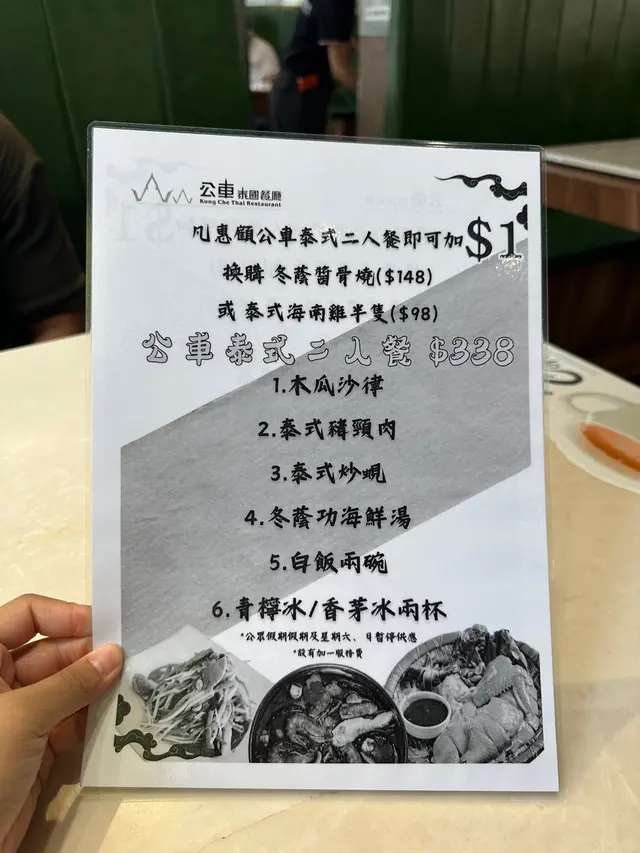 公車 泰國餐廳
Kung Che Thai Restaurant
凡惠顧公車泰式二人餐即可加$1
換購 冬蔭醬骨燒($148)
或 泰式海南雞半隻($98)
公車泰式二人餐 $338
1.木瓜沙律
2.泰式豬頸肉
3.泰式炒蜆
4.冬蔭功海鮮湯
5.白飯兩碗
6.青檸冰/香茅冰兩杯
*公眾假期假期及星期六、日暫停供應
*設有加一服務費